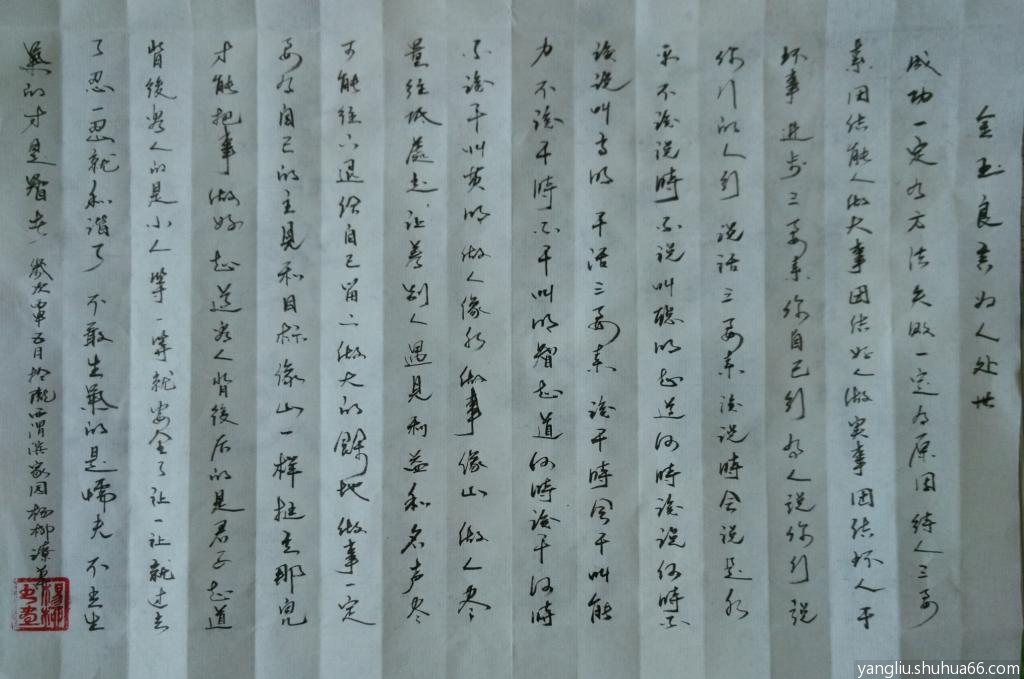 金玉良言为人处世
成功一定有方法失败一定有原因待人三要
素团结能人做大事团结好人做实事团结坏人干
坏事进步三要素你自己行有人说你行说
你行的人行说话三要素该说時会说是水
平不该说時不说叫聪明知道何時该说何時不
该说叫高明干活三要素该干時会干叫能
力不该干時不干叫明智知道何時该干何時
不该干叫英明做人像水做事像山做人尽
量往低處走让着别人遇見利益和名声尽
可能往后退给自己留一做大的餘地做事一定
要有自己的主見和目标像山一样挺立那兒
才能把事做好知道容人背後的是君子知道
背後害人的是小人等一等就安全了让一让就过去
了忍一忍就和谐了不敢生氣的是懦夫不去生
氣的才是智者五月於隴西渭滨家园杨柳潦草
楊柳书画
yangliu.shuhua66.com